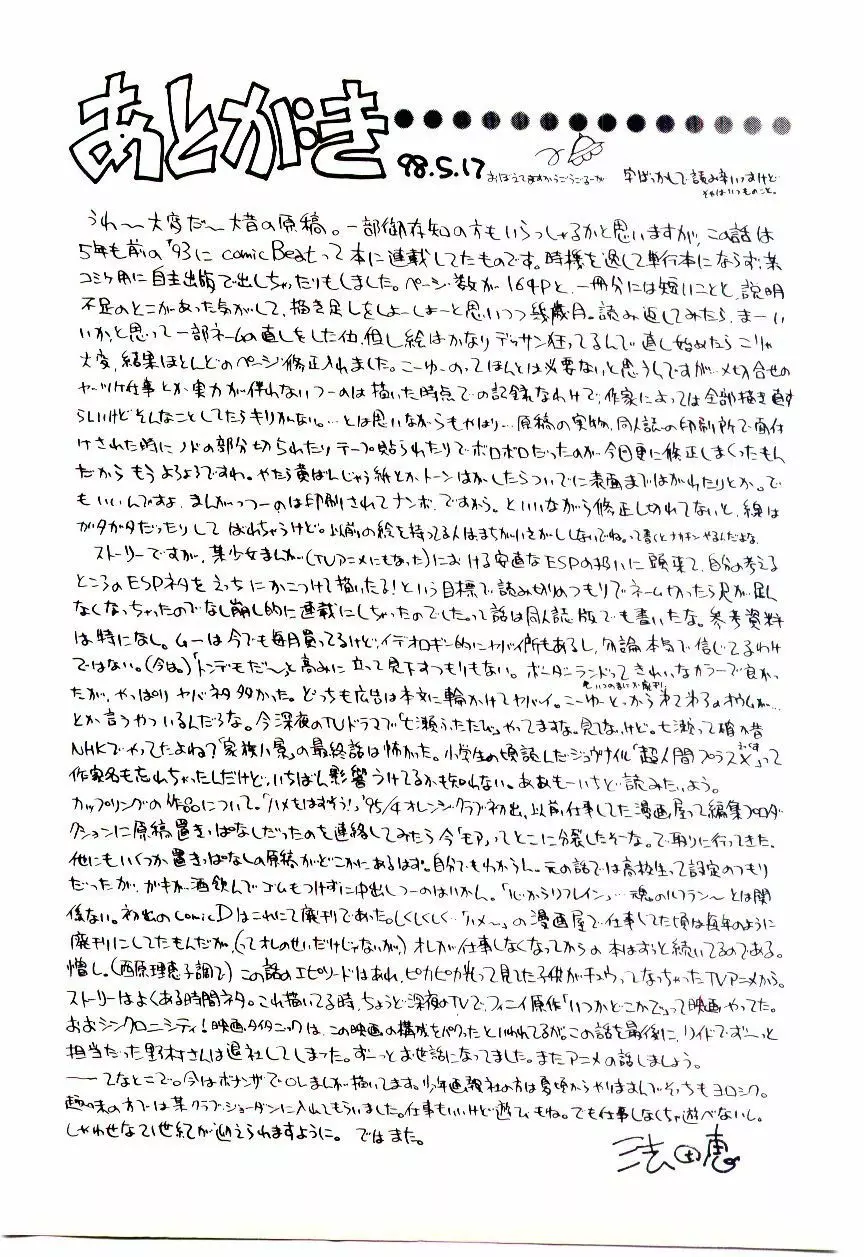 あとがき
98.5.17
おぼえてますかうごうごるーが
字ばっかしで読み辛いっすけど
それはいつものこと。
うれ〜大変だ〜大昔の原稿。一部御存知の方もいらっしゃるかと思いますが、この話は
5年も前の'93に comic Beatって本に連載してたものです。時機を逸して単行本にならず、某
コミケ用に自主出版で出しちゃったりもしました。ページ数が164Pと、一冊分には短いことと、説明
不足のとこがあった気がして、描き足しをしよーしよーと思いつつ幾歳月。読み返してみたら、まーい
いかと思って一部ネームの直しをした他、但し絵はかなりデッサン狂ってるんで直し始めたらこりゃ
大変、結果ほとんどのページ修正入れました。こーゆーのってほんとは必要ないと思うんですが…〆切合せの
ヤッツケ仕事とか実力が伴わないつーのは描いた時点での記録なわけで、作家によっては全部描き直す
らしいけどそんなことしてたらキリがない。…とは思いながらもやはり…原稿の実物、同人誌の印刷所で面付
けされた時にノドの部分切られたりテープ貼られたりでボロボロだったのが今回更に修正しまくったもん
だから もうよろよろですわ。やたら黄ばんじゃう紙とか、トーンはがしたらついでに表面まではがれたりとか。で
もいいんですよ、まんがっつーのは印刷されてナンボ、ですから。といいながら修正し切れてないと、線は
ガタガタだったりして ばれちゃうけど。以前の絵を持ってる人はまちがいさがししないでね。って書くとナカナンやるんだよな。
ストーリーですが、某少女まんが(TVアニメにもなった)における安直なESPの扱いに頭来て、自分の考える
ところのESPネタをえっちにかこつけて描いたる!という目標で読み切りのつもりでネーム切ったら尺が足ん
なくなっちゃったのでなし崩し的に連載にしちゃったのでした。って話は同人誌版でも書いたな。参考資料
は特になし。ムーは今でも毎月買ってるけど、イデオロギー的にヤバイ所もあるし、勿論本気で信じてるわけ
ではない。(今は。)「トンデモだ〜」と高みに立って見下すつもりもない。ボーダーランドってきれいなカラーで良かっ
もいつのまにか廃刊
たが、やっぱりヤバネタ多かった。どっちも広告は本文に輪かけてヤバイ。こーゆーとっからあれてあろオウムが…
とか言うやついるんだろな。今深夜のTVドラマで「七瀬ふたたび」やってますな。見てないけど。七瀬って確か昔
NHKでやってたよね?「家族八景」の最終話は怖かった。小学生の頃読んだジュヴナイル「超人間プラスX」って
作家名も忘れちゃったんだけど、いちばん影響うけてるかも知れない。ああもーいちど読みたいよう。
カップリングの作品について。「ハメもはずそう!」'95/4 オレンジクラブ初出、以前仕事してた漫画屋って編集プロダ
クションに原稿置きっぱなしだったのを連絡してみたら今「モア」ってとこに分裂したそーな。で取りに行ってきた。
他にもいくつか置きっぱなしの原稿がどこかにあるはず。自分でもわからん。元の話では高校生って設定のつもり
だったが、ガキが酒飲んでゴムもつけずに中出しつーのはいかん。「心からリフレイン」…魂のルフラン〜とは関
係ない。初出のComic Dはこれにて廃刊であった。しくしくしく…「ハメ〜」の漫画屋で仕事してた頃は毎年のように
廃刊にしてたもんだが、(ってオレのせいだけじゃないが)オレが仕事しなくなってからの本はずっと続いてるのである。
憎し。(西原理恵子調で) この話のエピソードはあれ、ピカピカ光って見てた子供がチュウってなっちゃったTVアニメから。
ストーリーはよくある時間ネタ。これ描いてる時、ちょうど深夜のTVで、フィニイ原作「いつかどこかで」って映画やってた。
おおシンクロニシティ!映画タイタニックは、この映画の構成をパクったといわれてるが。この話を最後に、リイドでず〜っと
担当だった野村さんは退社してしまった。ずーっとお世話になってました。またアニメの話しましょう。
――てなとこで。今はボナンザでOLまんが描いてます。少年画報社の方は夏頃からやりますんでそっちもヨロシク。
趣味の方では某クラブ・ショーダンに入れてもらいました。仕事もいいけど遊びもね。でも仕事しなくちゃ遊べないし。
しあわせな21世紀が迎えられますように。 ではまた。